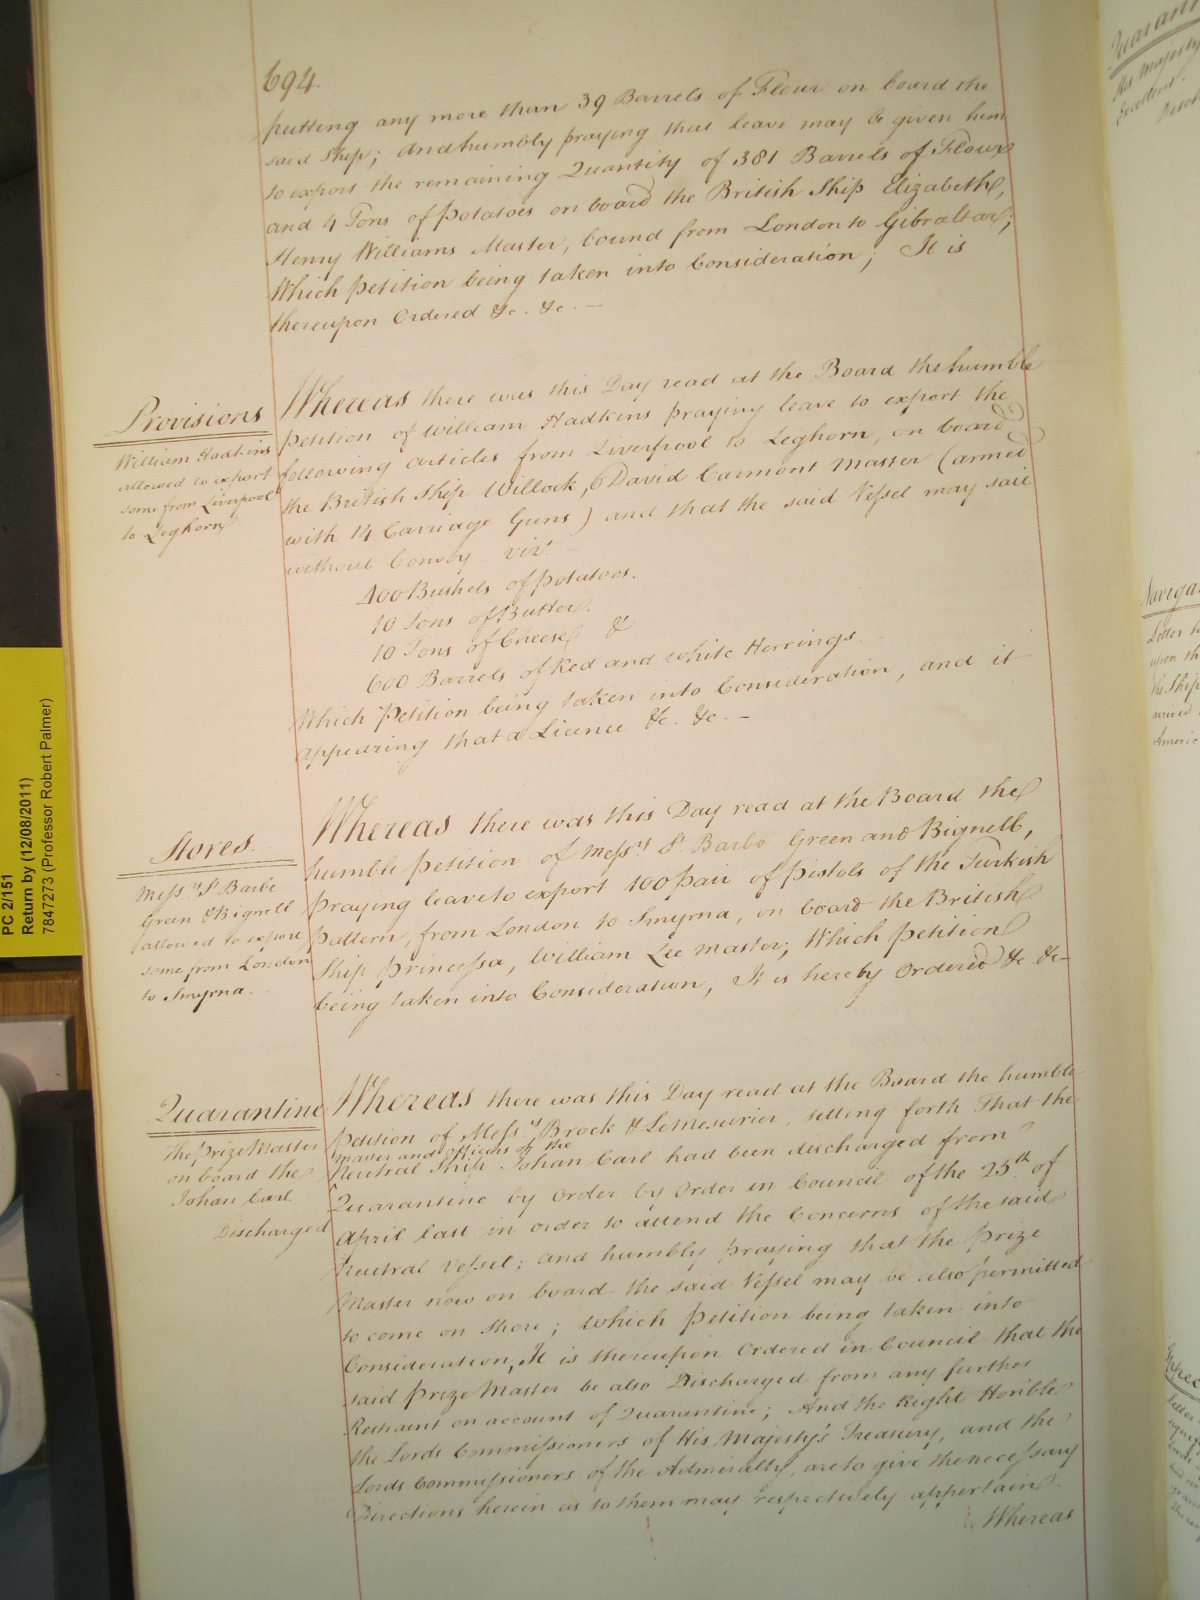 694.
putting any more than 39 Barrels of Flour on board the
said Ship; And humbly praying that leave may be given him
to export the remaining Quantity of 381 Barrels of Flour
and 4 Tons of potatoes on board the British Ship Elizabeth,
Henry Williams Master, bound from London to Gibraltar;
Which Petition being taken into Consideration; It is
thereupon Ordered &c. &c. —
Provisions
William Hadkins
allowed to export
some from Liverpool
to Leghorn
Whereas there was this Day read at the Board the humble
petition of William Hadkins praying leave to export the
following articles from Liverpool to Leghorn, on board
the British Ship Willock, David Carmont Master (armed
with 14 Carriage Guns) and that the said Vessel may sail
without Convoy vizt. —
400 Bushels of potatoes.
10 Tons of Butter.
10 Tons of Cheese &
600 Barrels of Red and white Herrings
Which Petition being taken into Consideration, and it
appearing that a Licence &c. &c. —
Stores.
Messrs. St. Barbe
Green & Bignell
allowed to export
some from London
to Smyrna.
Whereas there was this Day read at the Board the
humble petition of Messrs. St. Barbe Green and Bignell,
praying leave to export 100 pair of pistols of the Turkish
pattern, from London to Smyrna, on board the British
Ship Princessa, William Lee Master; Which Petition
being taken into Consideration, It is hereby Ordered &c &c—
Quarantine
The Prize Master
on board the
Johan Carl
Discharged
Whereas there was this Day read at the Board the humble
Petition of Messrs. Brock & LeMesurier, setting forth That the
master and officers of the
Neutral Ship Johan Carl had been discharged from
Quarantine by Order by Order in Council of the 25th of
April last in order to attend the Concerns of the said
Neutral Vessel; and humbly praying that the Prize
Master now on board the said Vessel may be also permitted
to come on Shore; Which Petition being taken into
Consideration, It is thereupon Ordered in Council that the
said Prize Master be also Discharged from any further
Restraint on account of Quarantine; And the Right Honble
the Lords Commissioners of His Majesty's Treasury, and the
Lords Commissioners of the Admiralty, are to give the necessary
Directions herein as to them may respectively appertain.
Whereas
PC 2/151
Return by (12/08/2011)
7847273 (Professor Robert Palmer)
His Majesty
Letter
upon th
the Ship
arrived
Americ